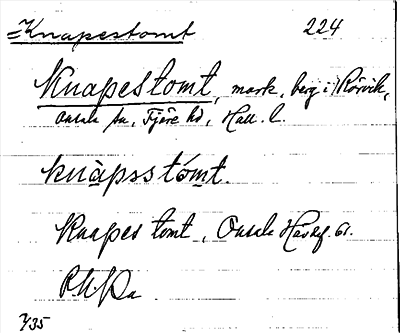 =Knapestomt 224
Knapestomt, mark, berg i Rörvik,
Onsala sn, Fjäre hd, Hall. l.
knàpsstómt.
Knapes tomt, Onsala
7/35